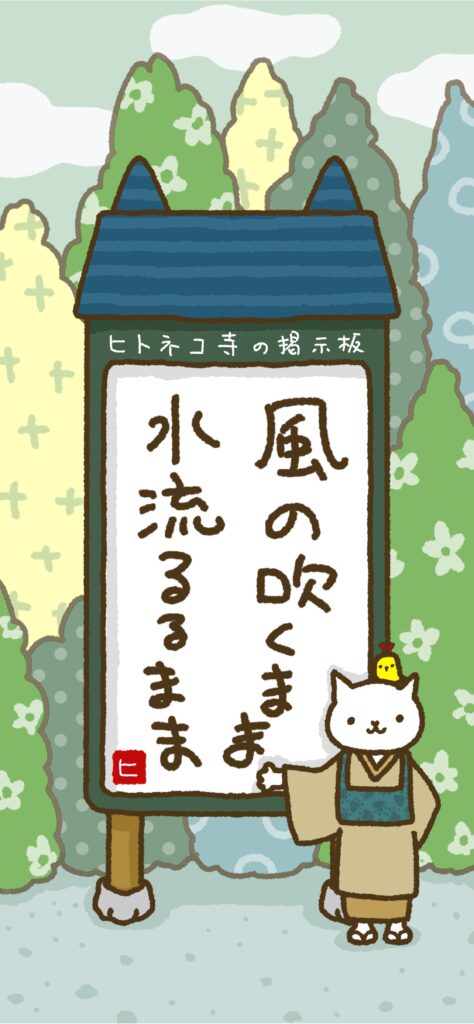 ヒトネコ寺の掲示板
風の吹くまま
水流るるまま
ヒ